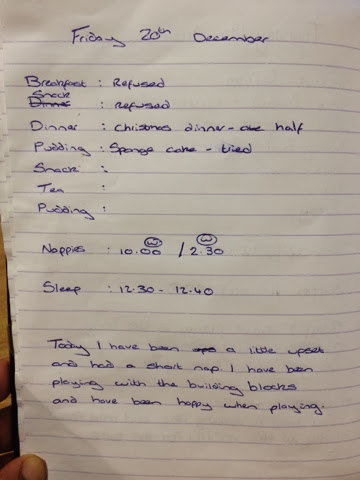 Friday 20th December
Breakfast : Refused
Snack
Dinner : Refused
Dinner : Christmas dinner - ate half
Pudding : Sponge cake - tried
Snack :
Tea :
Pudding :
W W
Nappies : 10.00 / 2.30
Sleep : 12.30 - 12.40
Today I have been a little upset
and had a short nap. I have been
playing with the building blocks
and have been happy when playing.